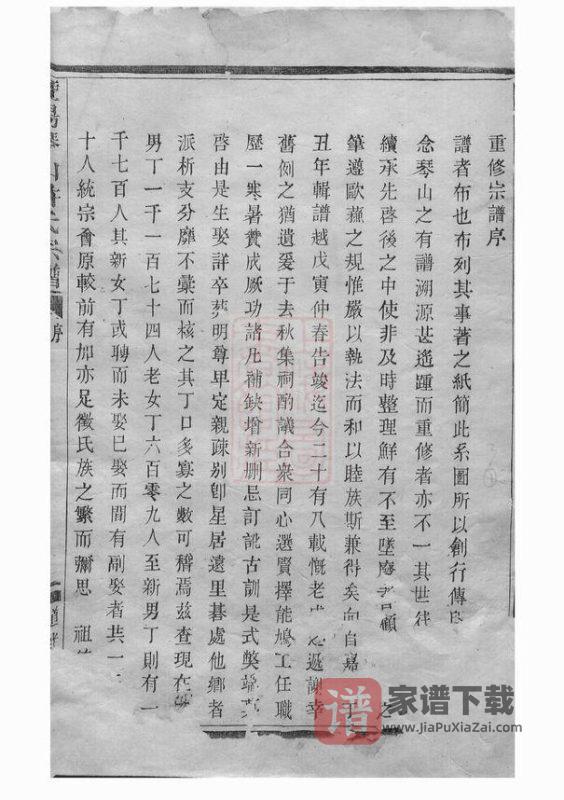 重修宗譜序
譜者布也布列其事著之紙簡此系圖所以創行傳
念琴山之有譜溯源甚遙踵而重修者亦不一其世往
續承先啓後之中使非及時整理鮮有不至墜廢者顧之
筆遵歐蘇之規惟嚴以執法而和以睦族斯兼得矣向自嘉于
丑年輯譜越戊寅仲春告竣迄今二十有八載慨老成凋謝幸
舊例之猶遺爰于去秋集祠酌議合衆同心選賢擇能鳩工任職
歷一寒暑賛成厥功諸凡補缺增新删忌訂訛古訓是式獘
啓由是生娶詳卒葬明尊卑定親疎别卽星居遠里碁處他鄉者
派析支分靡不彙而核之其丁口多寡之數可稽焉茲查現在
男丁一千一百七十四人老女丁六百零九人至新男丁則有一
千七百人其新女丁或聘而未娶巳娶而間有副娶者共一
十人統宗會原較前有加亦足徵氏族之繁而彌思 祖
氏宗譜
序
譜
家谱下载
www.JiaPuXiaZai.com